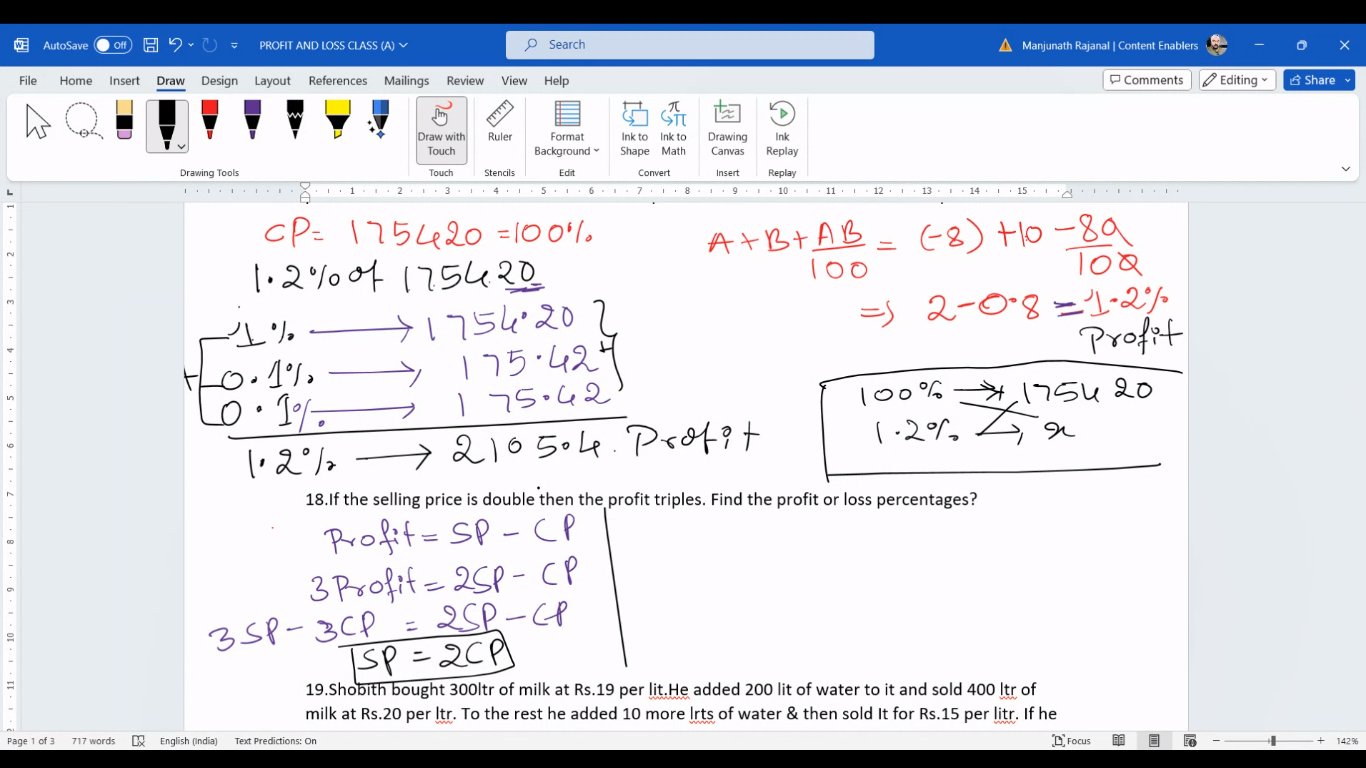 AutoSave Off PROFIT AND LOSS CLASS (A) Search Manjunath Rajanal | Content Enablers
File Home Insert Draw Design Layout References Mailings Review View Help Comments Editing Share
Draw with Touch Ruler Format Background Ink to Shape Ink to Math Drawing Canvas Ink Replay
Drawing Tools Touch Stencils Edit Convert Insert Replay
1 2 3 4 5 6 7 8 9 10 11 12 13 14 15
CP = 175420 = 100%
1.2% of 175420
1% → 1754.20
0.1% → 175.42
0.1% → 175.42
1.2% → 2105.04. Profit
A+B+AB/100 = (-8) +10 -80/100
=> 2-0.8 = 1.2%
Profit
100% → 175420
1.2% → x
18.If the selling price is double then the profit triples. Find the profit or loss percentages?
Profit = SP - CP
3 Profit = 2SP - CP
3SP - 3CP = 2SP - CP
SP = 2CP
19.Shobith bought 300ltr of milk at Rs.19 per lit.He added 200 lit of water to it and sold 400 ltr of
milk at Rs.20 per ltr. To the rest he added 10 more lrts of water & then sold It for Rs.15 per litr. If he
Page 1 of 3 717 words English (India) Text Predictions: On Focus 142%